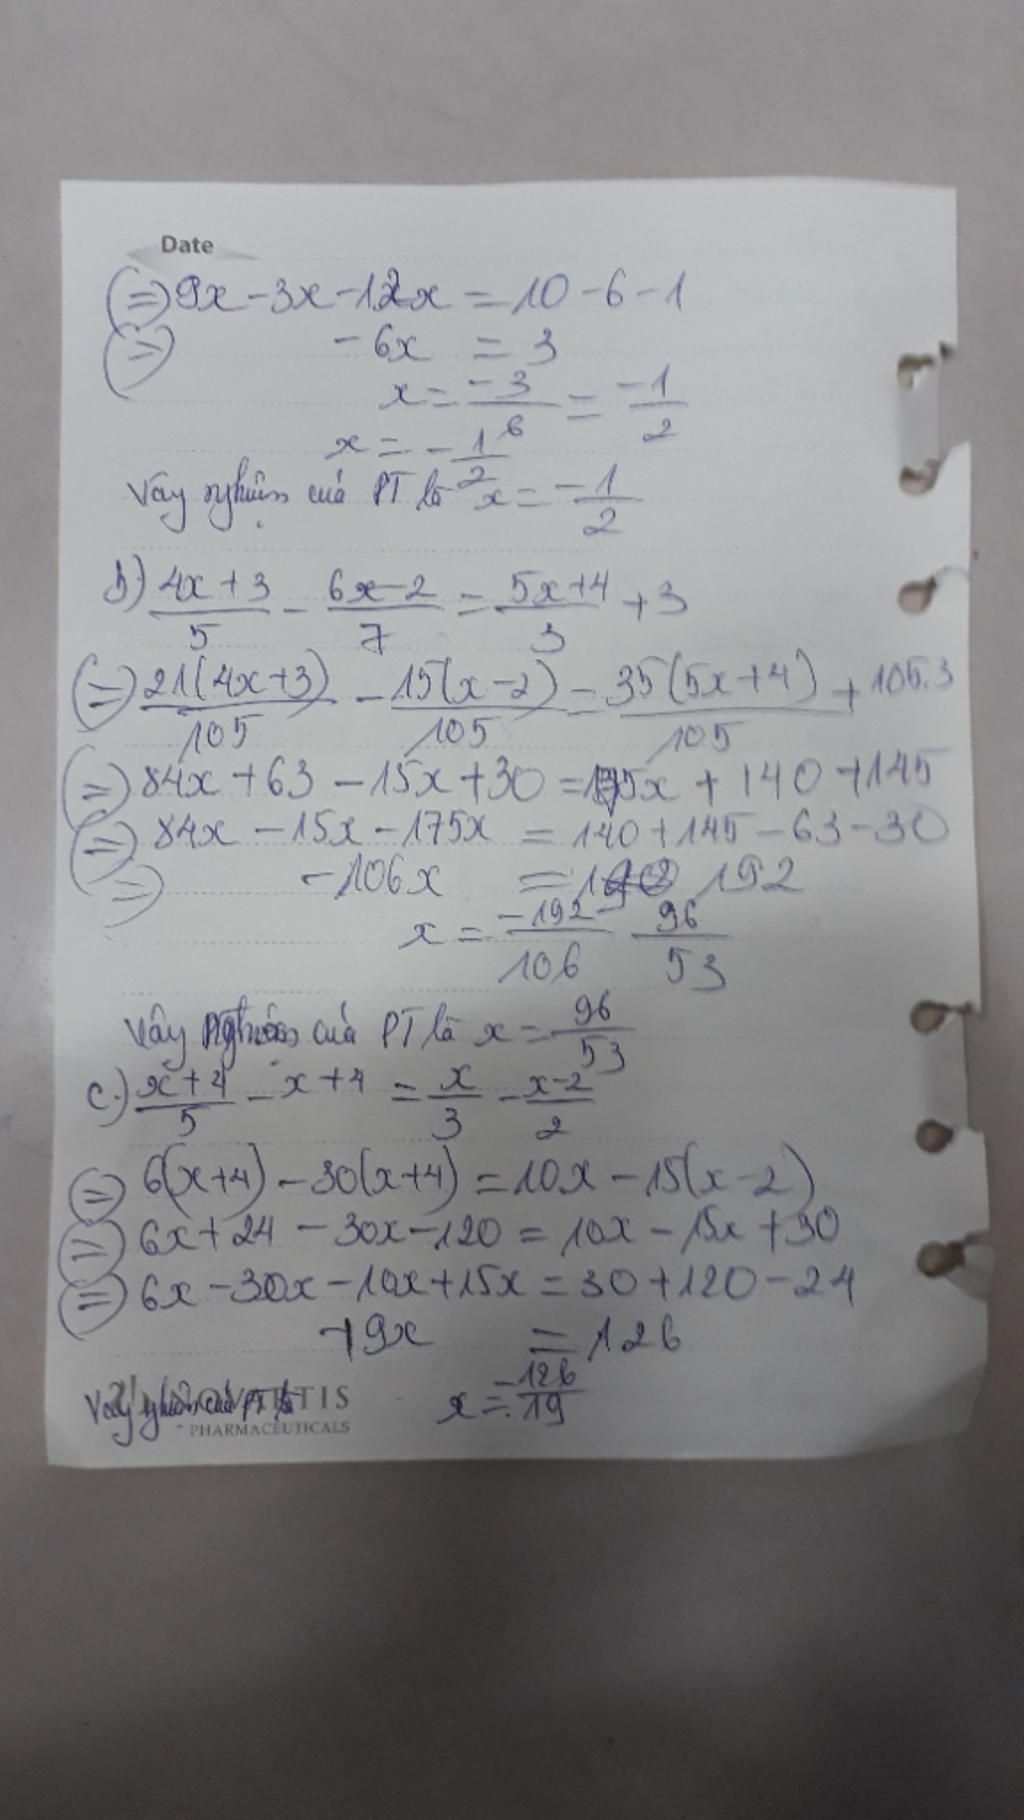 Date
(=) 9x - 3x - 12x = 10 - 6 - 1
(=) - 6x = 3
x = -3/6 = -1/2
x = - 1/2
Vậy nghiệm của PT là x = -1/2
b) 4x + 3/5 - 6x - 2/7 = 5x + 4/3 + 3
(=) 21(4x+3)/105 - 15(x-2)/105 = 35(5x+4)/105 + 105.3
(=) 84x + 63 - 15x + 30 = 175x + 140 + 145
(=) 84x - 15x - 175x = 140 + 145 - 63 - 30
(=) - 106x = 192
x = -192/106 96/53
Vậy nghiệm của PT là x = 96/53
c.) x+4/5 - x + 4 = x/3 - x-2/2
(=) 6(x+4) - 30(x+4) = 10x - 15(x-2)
(=) 6x + 24 - 30x - 120 = 10x - 15x + 30
(=) 6x - 30x - 10x + 15x = 30 + 120 - 24
-19x = 126
Vậy nghiệm của PT là x = -126/19
PHARMACEUTICALS